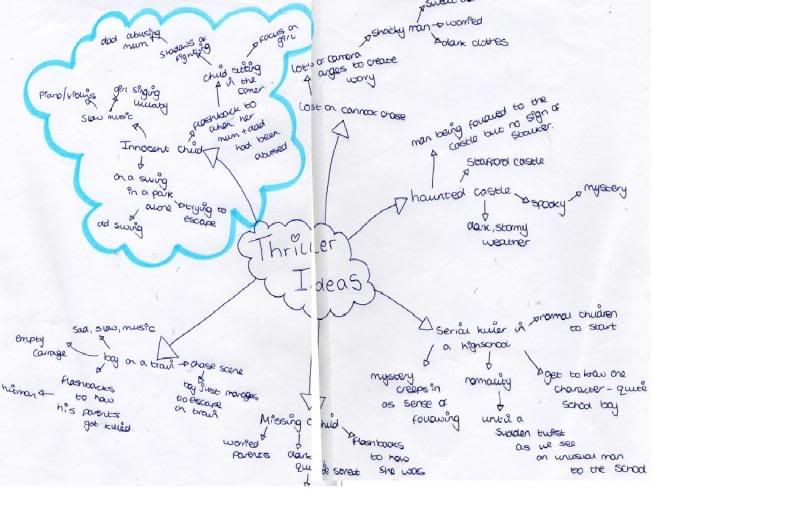 Thriller
Ideas
Innocent child
slow music
piano/violins
girl singing
lullaby
on a swing
in a park
alone
trying to
escape
old swing
flashback to
when her
mum + dad
had been
abused
child sitting
in the
corner
focus on
girl
shadows of
fighting
dad abusing
mum
Lost on cannock chase
Lots of camera
angles to create
worry
shacky man
worried
dark clothes
haunted castle
man being followed to the
castle but no sign of
stalker.
Stafford castle
spooky
mystery
dark, stormy
weather
Serial killer in
a highschool
normal children
to start
get to know one
character - quite
school boy
normality
until a
sudden twist
as we see
an unusual man
to the school
mystery
creeps in
as sense of
following
Missing child
worried
parents
dark
street
flashbacks
to how
she was
boy on a train
sad, slow, music
empty
carriage
flashbacks
to how
his parents
got killed
hitman
chase scene
boy just manages
to escape
on train